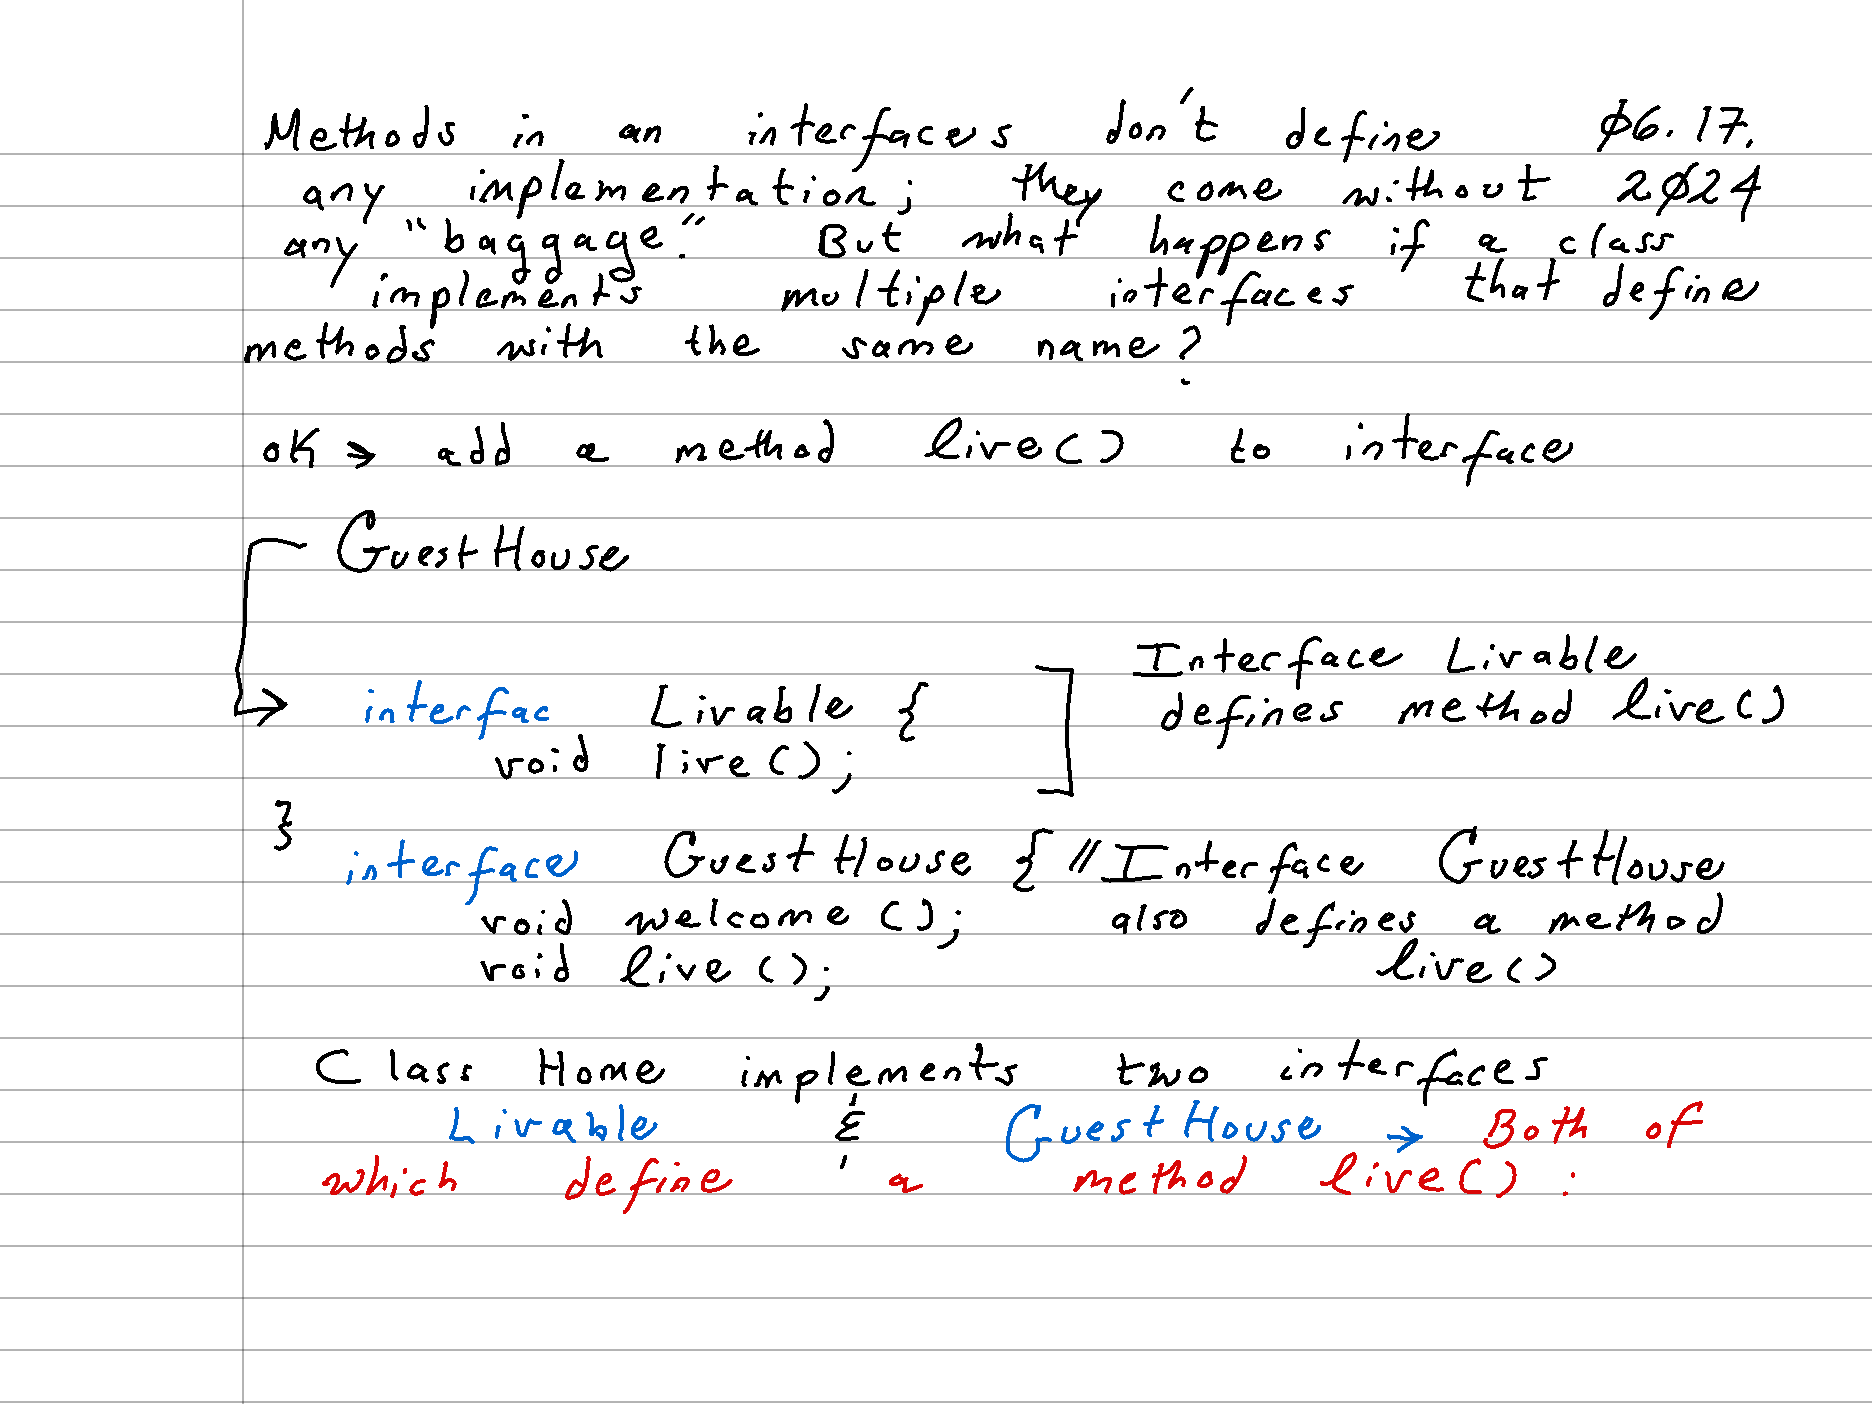 Methods in an interfaces don't define ø6.17.
any implementation; they come without 2ø24
any "baggage." But what happens if a class
implements multiple interfaces that define
methods with the same name?
oK → add a method live() to interface
GuestHouse
Interface Livable
→ interfac Livable { defines method live()
void live();
}
interface GuestHouse { // Interface GuestHouse
void welcome(); also defines a method
void live(); live()
Class Home implements two interfaces
Livable & GuestHouse → Both of
which define a method live() :